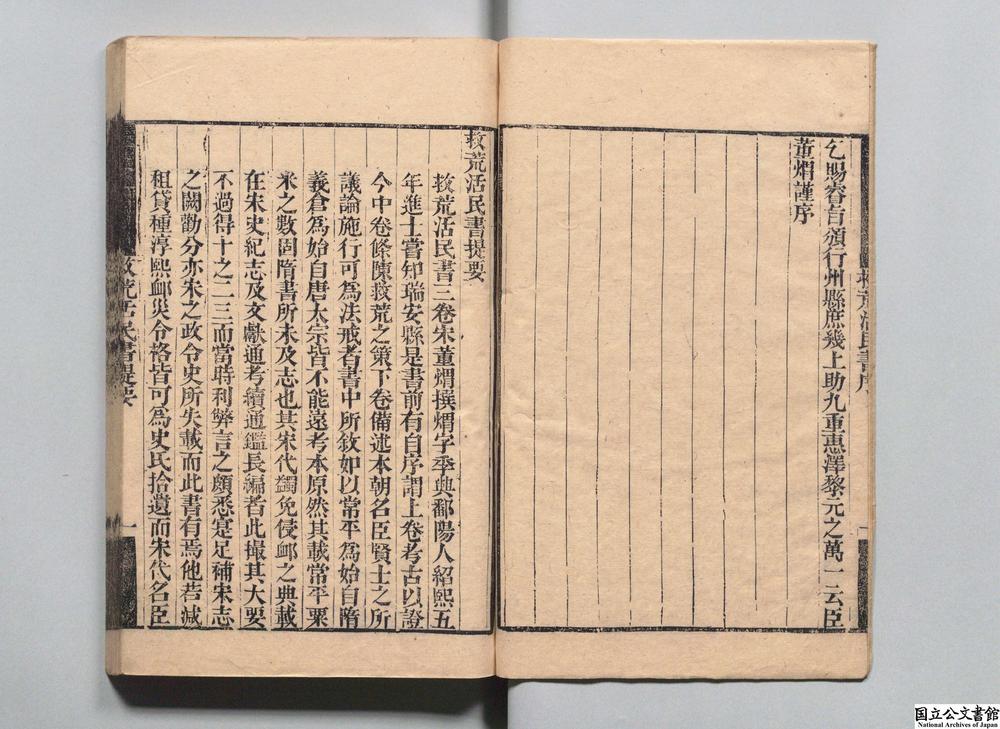 乞賜睿旨頒行州縣庶幾上助九重惠澤黎元之萬一云臣
董煟謹序
救荒活民書序
一
救荒活民書提要
救荒活民書三卷宋董煟撰煟字季興鄱陽人紹熙五
年進士嘗知瑞安縣是書前有自序謂上卷考古以證
今中卷條陳救荒之策下卷備述本朝名臣賢士之所
議論施行可為法戒者書中所敘如以常平為始自隋
義倉為始自唐太宗皆不能遠考本原然其載常平粟
米之數固隋書所未及志也其宋代蠲免優䘏之典載
在宋史紀志及文獻通考續通鑑長編者此撮其大要
不過得十之二三而當時利弊言之頗悉寔足補宋志
之闕勸分亦宋之政令史所失載而此書有焉他若減
租貸種淳熙䘏災令格皆可為史氏拾遺而宋代名臣
救荒活民書提要
一
国立公文書館
National Archives of Japan